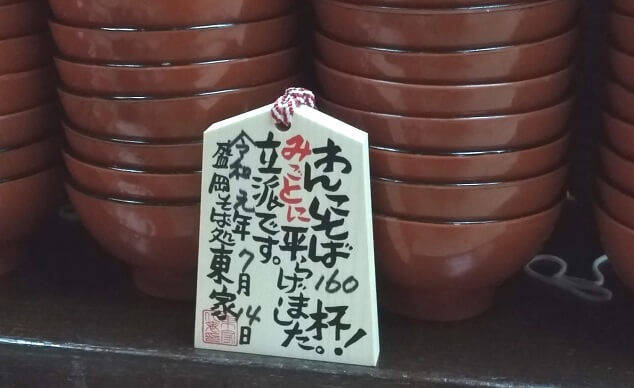 わんこそば160杯!
みごとに平らげました。
立派です。
令和元年7月14日
盛岡そば処東家